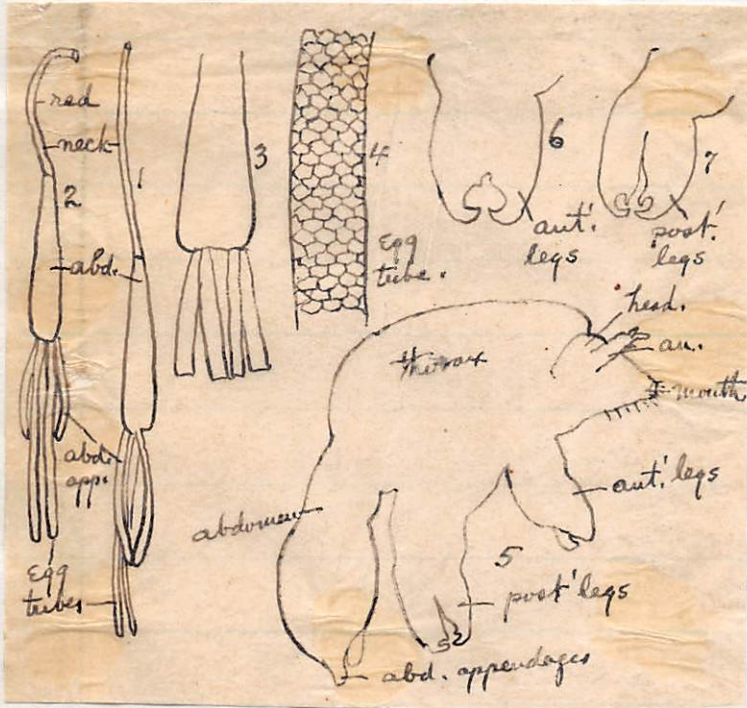 red
neck
1
2
abd.
abd.
app.
Egg
tubes
3
4
Egg
tube.
6
ant.
legs
7
post.
legs
head.
an.
mouth
thorax
ant. legs
abdomen
5
post legs
abd. appendages